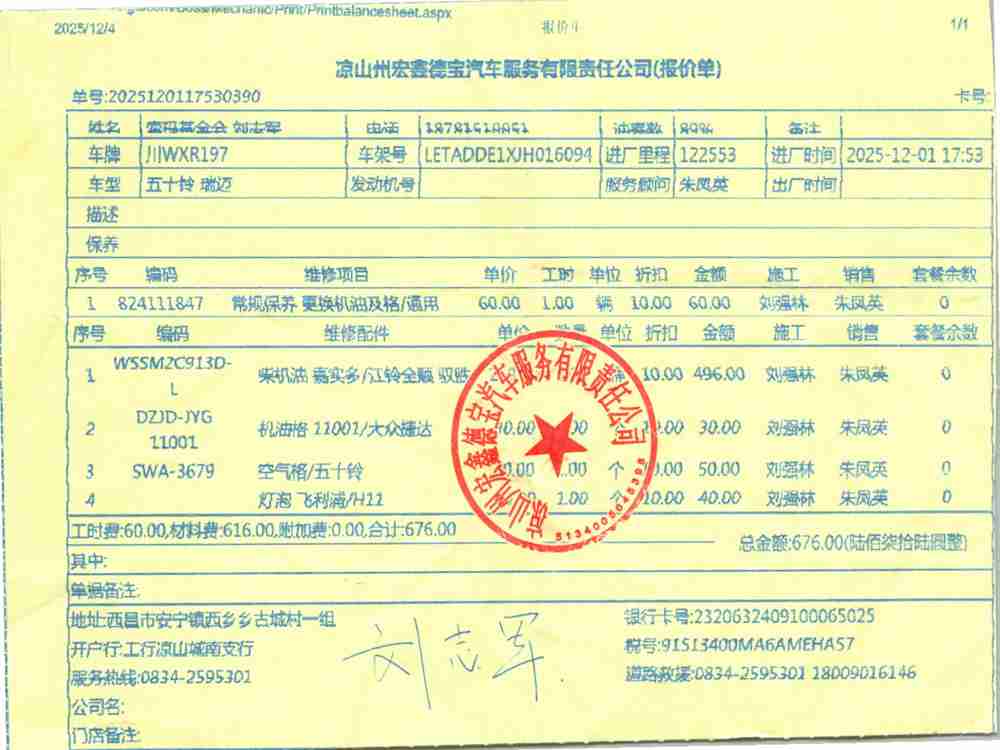 Mechanic/Print/Printbalancesheet.aspx
2025/12/4 报价单 1/1
凉山州宏鑫德宝汽车服务有限责任公司(报价单)
单号:2025120117530390 卡号:
姓名 索玛基金会 刘志军 电话 油表数 89% 备注
车牌 川WXR197 车架号 LETADDE1XJH016094 进厂里程 122553 进厂时间 2025-12-01 17:53
车型 五十铃 瑞迈 发动机号 服务顾问 朱凤英 出厂时间
描述
保养
序号 编码 维修项目 单价 工时 单位 折扣 金额 施工 销售 套餐余数
1 824111847 常规保养 更换机油及格/通用 60.00 1.00 辆 10.00 60.00 刘强林 朱凤英 0
序号 编码 维修配件 单价 数量 单位 折扣 金额 施工 销售 套餐余数
WSSM2C913D-
1 柴机油 嘉实多/江铃全顺 驭胜 10.00 496.00 刘强林 朱凤英 0
L
DZJD-JYG
2 机油格 11001/大众捷达 30.00 刘强林 朱凤英 0
11001
3 SWA-3679 空气格/五十铃 个 50.00 刘强林 朱凤英 0
4 灯泡 飞利浦/H11 1.00 个 10.00 40.00 刘强林 朱凤英 0
工时费:60.00,材料费:616.00,附加费:0.00,合计:676.00
总金额:676.00(陆佰柒拾陆圆整)
其中:
单据备注:
地址:西昌市安宁镇西乡乡古城村一组 银行卡号:2320632409100065025
开户行:工行凉山城南支行 税号:91513400MA6AMEHA57
服务热线:0834-2595301 道路救援:0834-2595301 18009016146
公司名:
门店备注:
刘志军
凉山州宏鑫德宝汽车服务有限责任公司